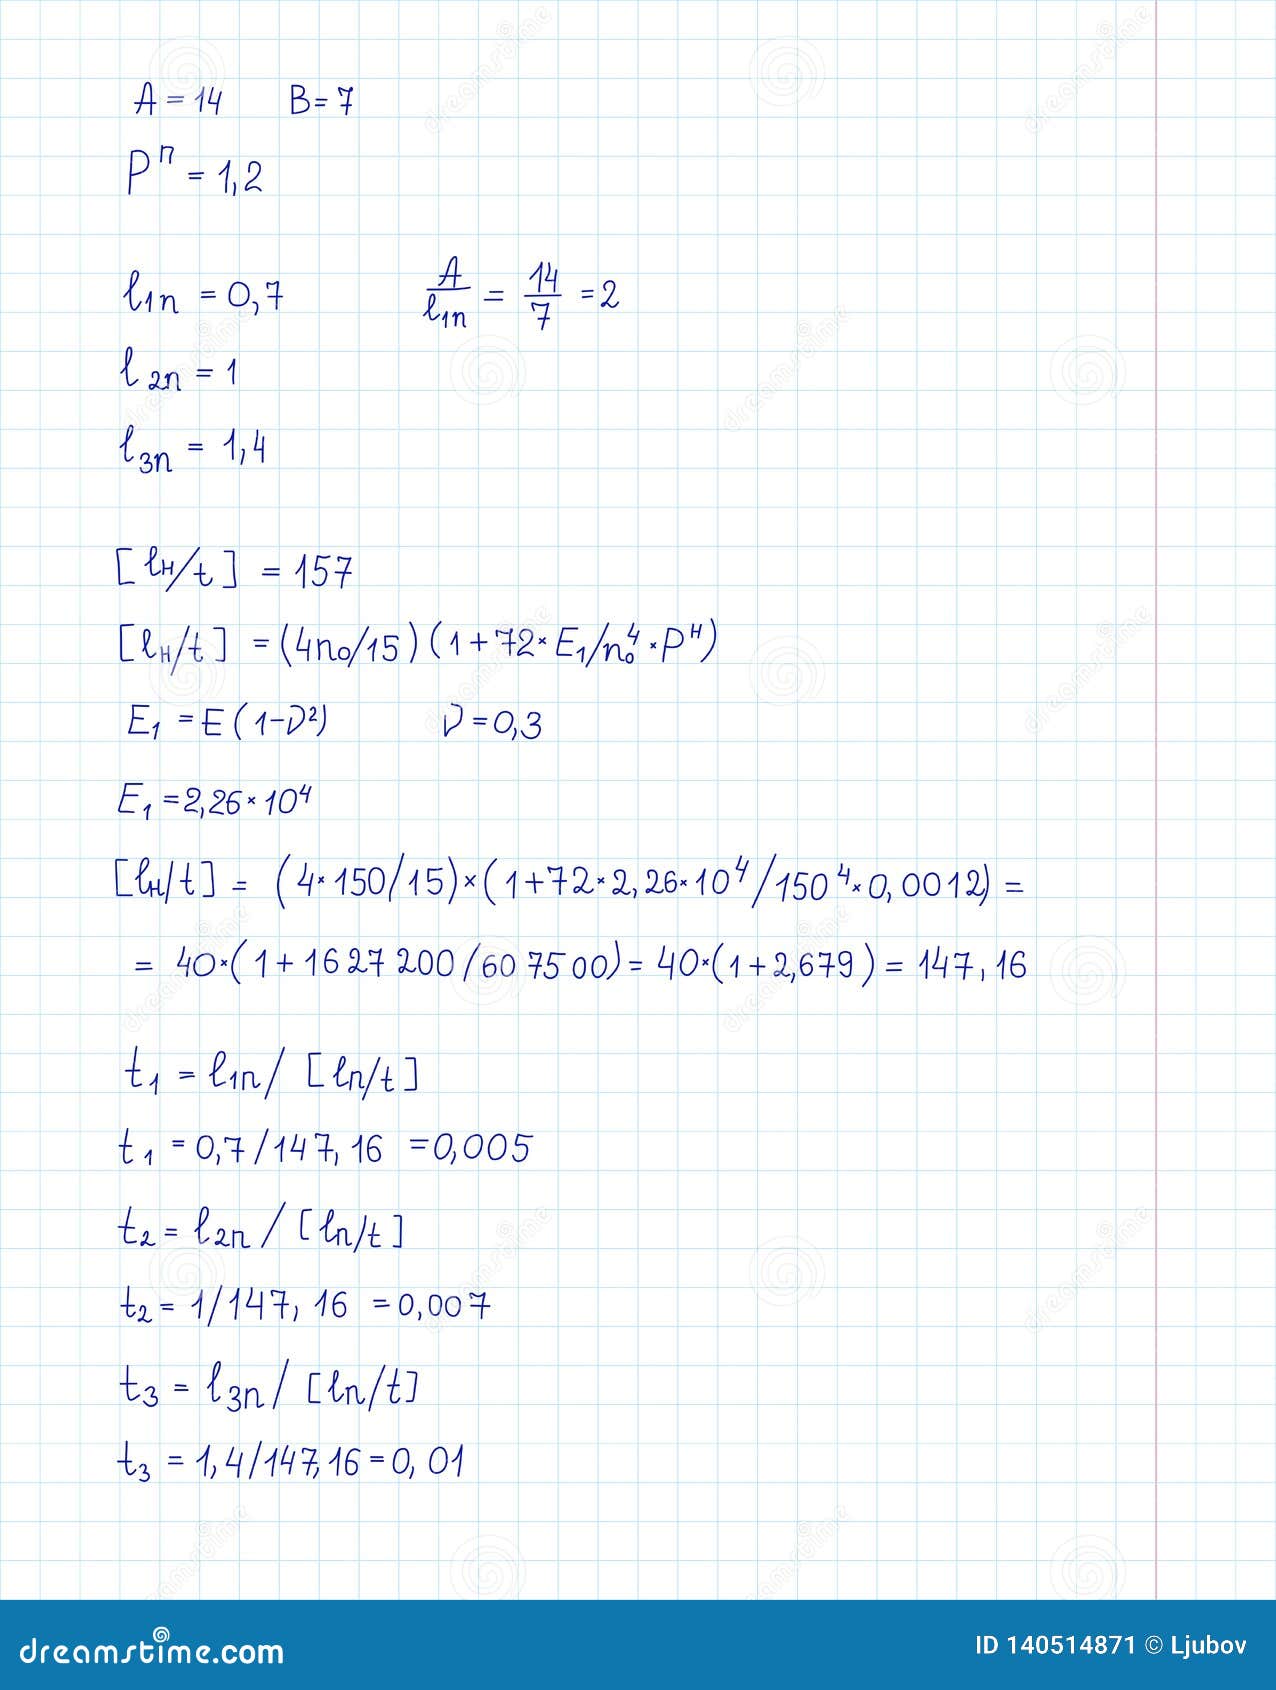 A = 14 B = 7
Pⁿ = 1,2
l₁n = 0,7 A/l₁n = 14/7 = 2
l₂n = 1
l₃n = 1,4
[lн/t] = 157
[lн/t] = (4n₀/15)(1+72×E₁/n₀⁴×Pᴴ)
E₁ = E(1-ν²) ν = 0,3
E₁ = 2,26×10⁴
[lн/t] = (4×150/15)×(1+72×2,26×10⁴/150⁴×0,0012) =
= 40×(1+1627200/607500) = 40×(1+2,679) = 147,16
t₁ = l₁n/[ln/t]
t₁ = 0,7/147,16 = 0,005
t₂ = l₂n/[ln/t]
t₂ = 1/147,16 = 0,007
t₃ = l₃n/[ln/t]
t₃ = 1,4/147,16 = 0,01
dreamstime.com ID 140514871 © Ljubov